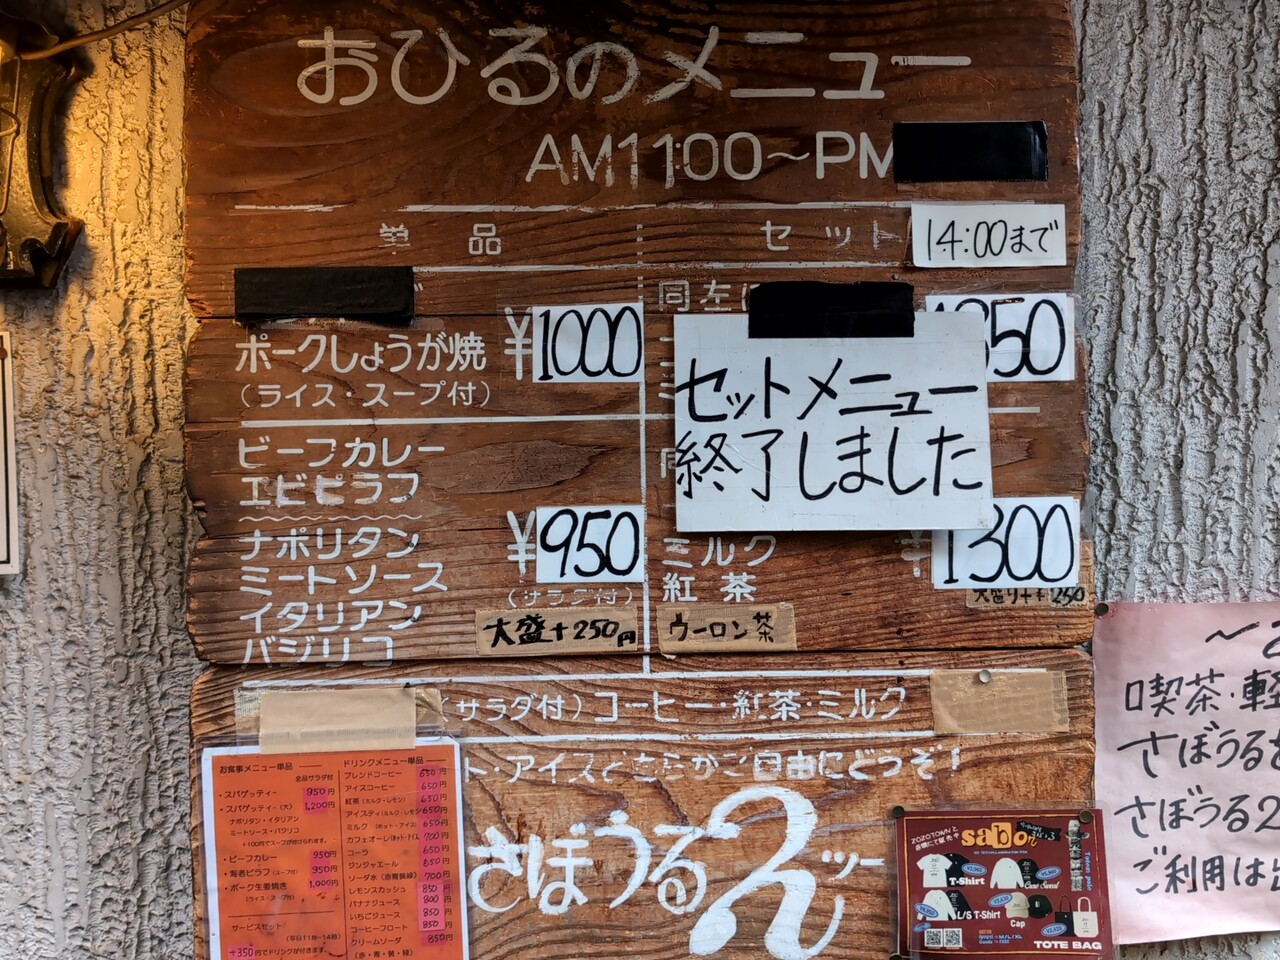 おひるのメニュー
AM11:00～PM
単品
セット
14:00まで
ポークしょうが焼
(ライス・スープ付)
¥1000
同左に
セットメニュー
終了しました
ビーフカレー
エビピラフ
ナポリタン
ミートソース
イタリアン
バジリコ
¥950
(サラダ付)
大盛+250円
ミルク
紅茶
ウーロン茶
¥1300
(サラダ付)コーヒー・紅茶・ミルク
ト・アイスどちらかご自由にどうぞ!
さぼうる2
ツー
お食事メニュー単品
全品サラダ付
・スパゲッティー 950円
・スパゲッティー(大) 1,200円
ナポリタン・イタリアン
ミートソース・バジリコ
+100円でスープが付けられます。
・ビーフカレー 950円
・海老ピラフ(スープ付) 950円
・ポーク生姜焼き 1,000円
(ライス・スープ付)
サービスセット
(平日11時-14時)
+350円でドリンクが付きます。
ドリンクメニュー単品
ブレンドコーヒー 650円
アイスコーヒー 650円
紅茶(ミルク・レモン) 650円
アイスティ(ミルク・レモン) 650円
ミルク(ホット・アイス) 650円
カフェオーレ(ホット・アイス) 700円
コーラ 650円
ジンジャエール 850円
ソーダ水(赤青黄緑) 700円
レモンスカッシュ 850円
バナナジュース 800円
いちごジュース 850円
コーヒーフロート 850円
クリームソーダ 850円
(赤・青・黄・緑)
ZOZOTOWNと
店頭にて販売中
sabor
T-Shirt
Crew Sweat
L/S T-Shirt
Cap
TOTE BAG
喫茶・軽
さぼうる
さぼうる2
ご利用は